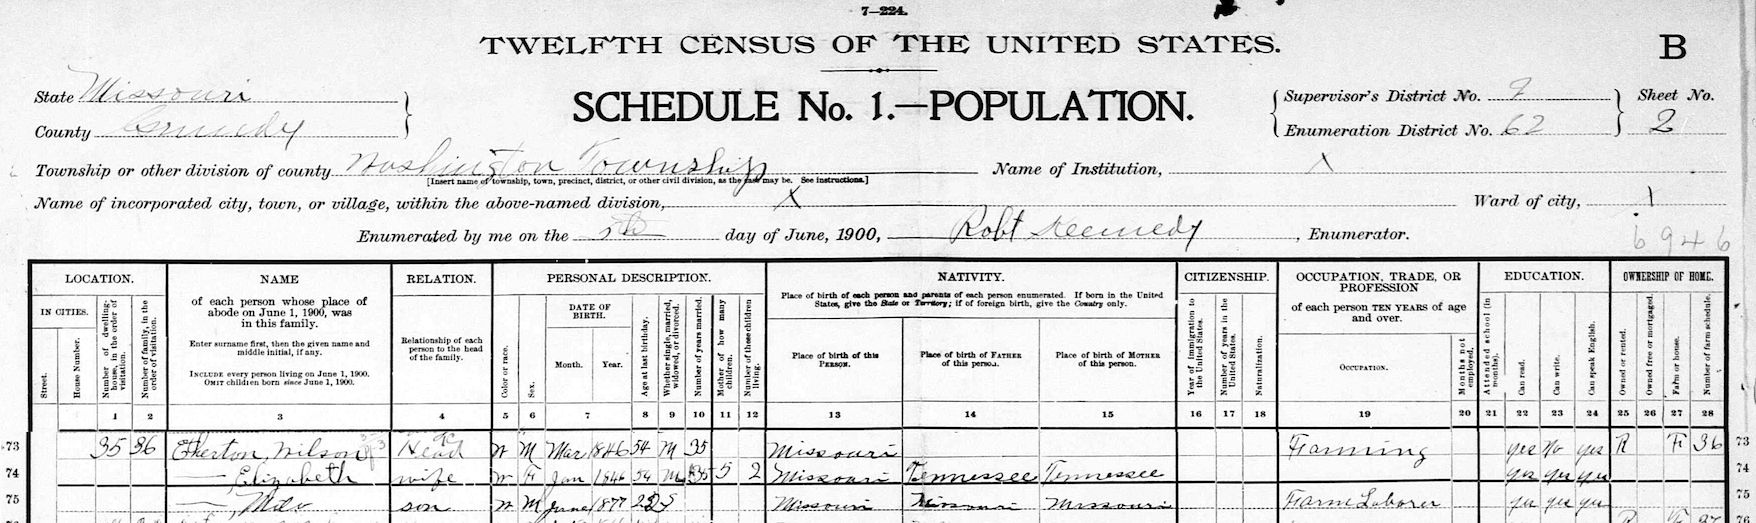 7—224.
TWELFTH CENSUS OF THE UNITED STATES.
B
State Missouri
County
SCHEDULE No. 1.—POPULATION.
Supervisor's District No.
Enumeration District No. 62
Sheet No.
2
Township or other division of county Washington Township
[Insert name of township, town, precinct, district, or other civil division, as the case may be. See instructions.]
Name of Institution, X
Name of incorporated city, town, or village, within the above-named division, X
Ward of city, 1
Enumerated by me on the 5th day of June, 1900, Robt Kennedy, Enumerator.
6946
LOCATION.
IN CITIES.
Street.
House Number.
Number of dwelling-house, in the order of visitation.
Number of family, in the order of visitation.
NAME
of each person whose place of abode on June 1, 1900, was in this family.
Enter surname first, then the given name and middle initial, if any.
INCLUDE every person living on June 1, 1900.
OMIT children born since June 1, 1900.
RELATION.
Relationship of each person to the head of the family.
PERSONAL DESCRIPTION.
Color or race.
Sex.
DATE OF BIRTH.
Month. Year.
Age at last birthday.
Whether single, married, widowed, or divorced.
Number of years married.
Mother of how many children.
Number of these children living.
NATIVITY.
Place of birth of each person and parents of each person enumerated. If born in the United States, give the State or Territory; if of foreign birth, give the Country only.
Place of birth of this PERSON.
Place of birth of FATHER of this person.
Place of birth of MOTHER of this person.
CITIZENSHIP.
Year of immigration to the United States.
Number of years in the United States.
Naturalization.
OCCUPATION, TRADE, OR PROFESSION
of each person TEN YEARS of age and over.
OCCUPATION.
Months not employed.
EDUCATION.
Attended school (in months).
Can read.
Can write.
Can speak English.
OWNERSHIP OF HOME.
Owned or rented.
Owned free or mortgaged.
Farm or house.
Number of farm schedule.
1 2 3 4 5 6 7 8 9 10 11 12 13 14 15 16 17 18 19 20 21 22 23 24 25 26 27 28
73 35 36 Etherton, Wilson Head W M Mar 1846 54 M 35 Missouri Farming yes No yes R F 36 73
74 — Elizabeth wife W F Jan 1846 54 M 35 5 2 Missouri Tennessee Tennessee yes yes yes 74
75 — Milo son W M June 1877 22 S Missouri Missouri Missouri Farm Laborer yes yes yes 75